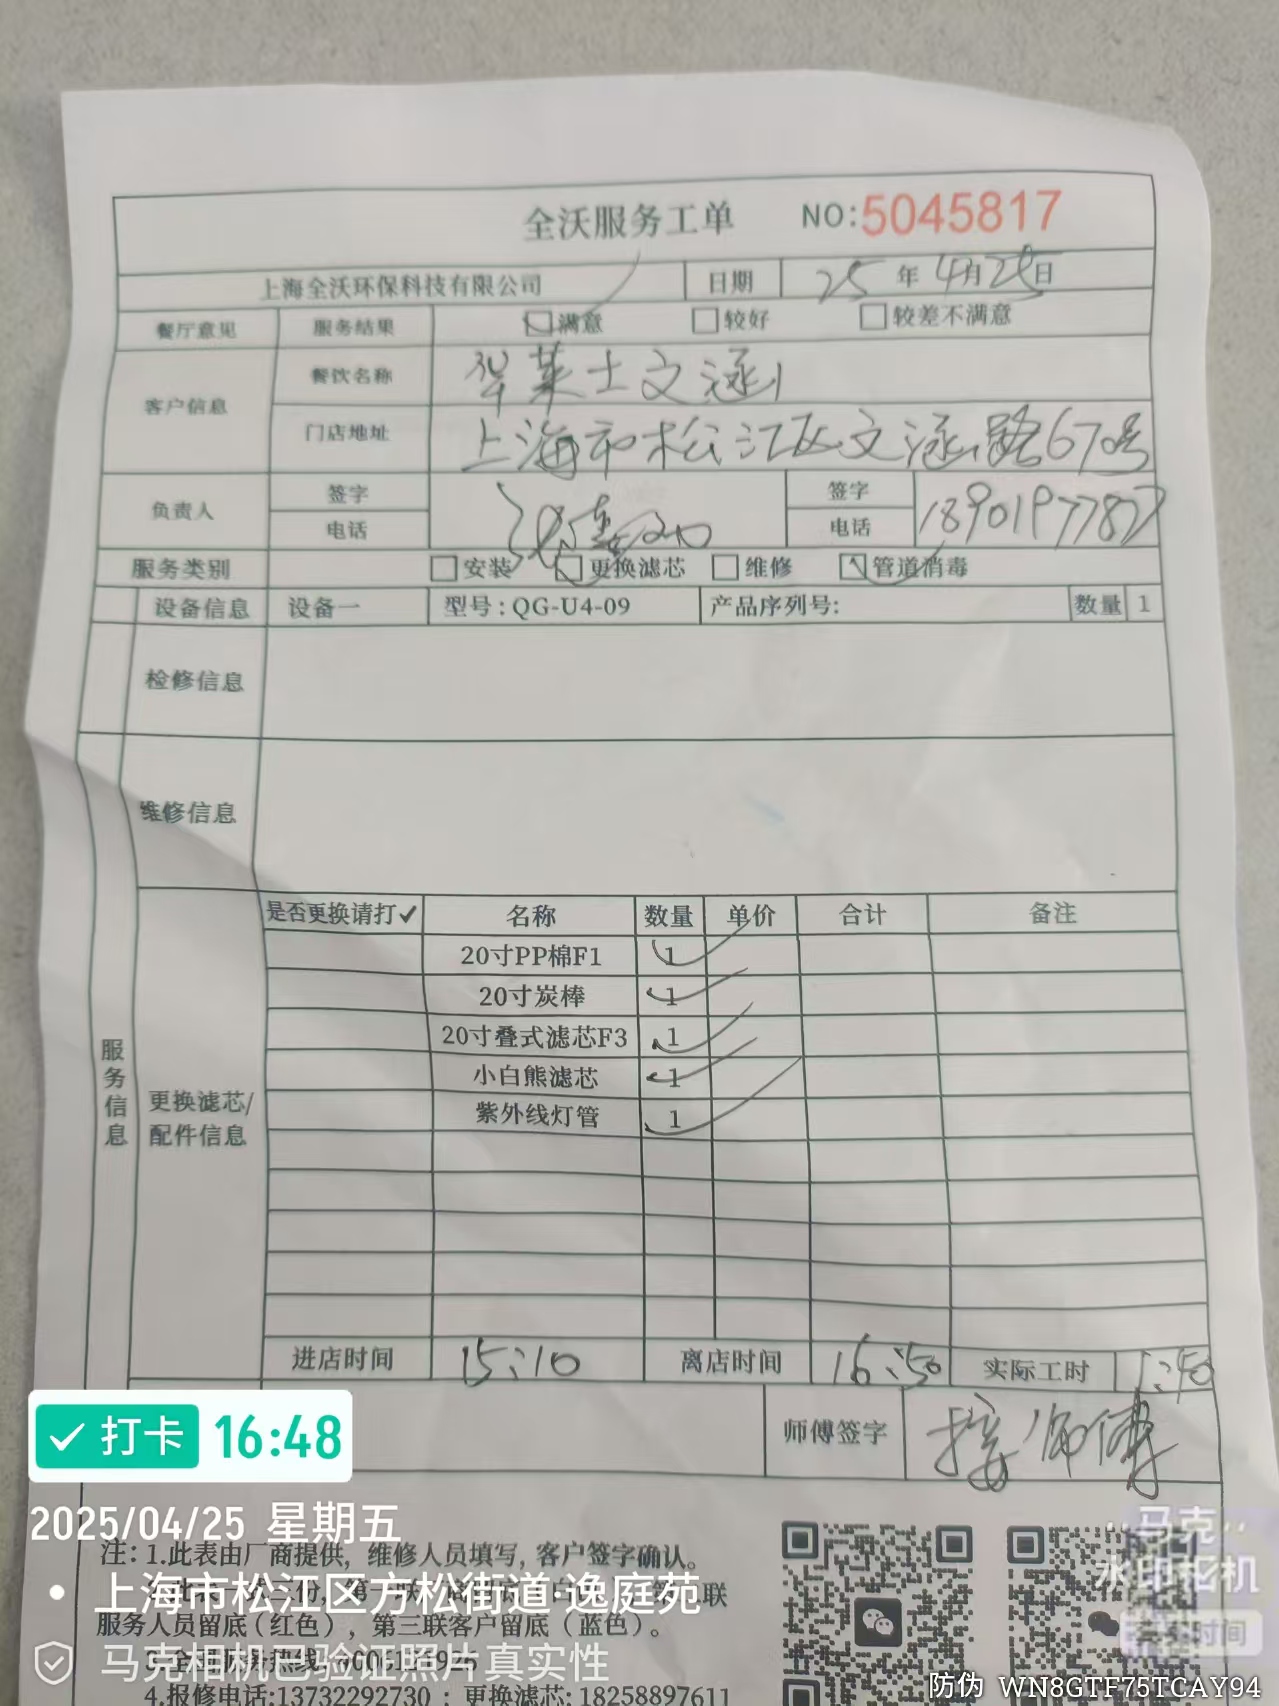 全沃服务工单 NO:5045817
上海全沃环保科技有限公司 日期 25年4月25日
餐厅意见 服务结果 满意 较好 较差不满意
客户信息 餐饮名称 华莱士文涵
门店地址 上海市松江区文涵路670号
负责人 签字 签字
电话 电话 18901977827
服务类别 安装 更换滤芯 维修 管道消毒
设备信息 设备一 型号:QG-U4-09 产品序列号: 数量 1
检修信息
维修信息
服务信息
更换滤芯/配件信息
是否更换请打✓ 名称 数量 单价 合计 备注
20寸PP棉F1 1
20寸炭棒 1
20寸叠式滤芯F3 1
小白熊滤芯 1
紫外线灯管 1
进店时间 15:10 离店时间 16:50 实际工时 1:40
师傅签字 师傅
打卡 16:48
2025/04/25 星期五
注:1.此表由厂商提供,维修人员填写,客户签字确认。
上海市松江区方松街道·逸庭苑
服务人员留底(红色),第三联客户留底(蓝色)。
马克相机已验证照片真实性
4.报修电话:13732292730 ; 更换滤芯:18258897611
马克
水印相机
真实时间
防伪 WN8GTF75TCAY94